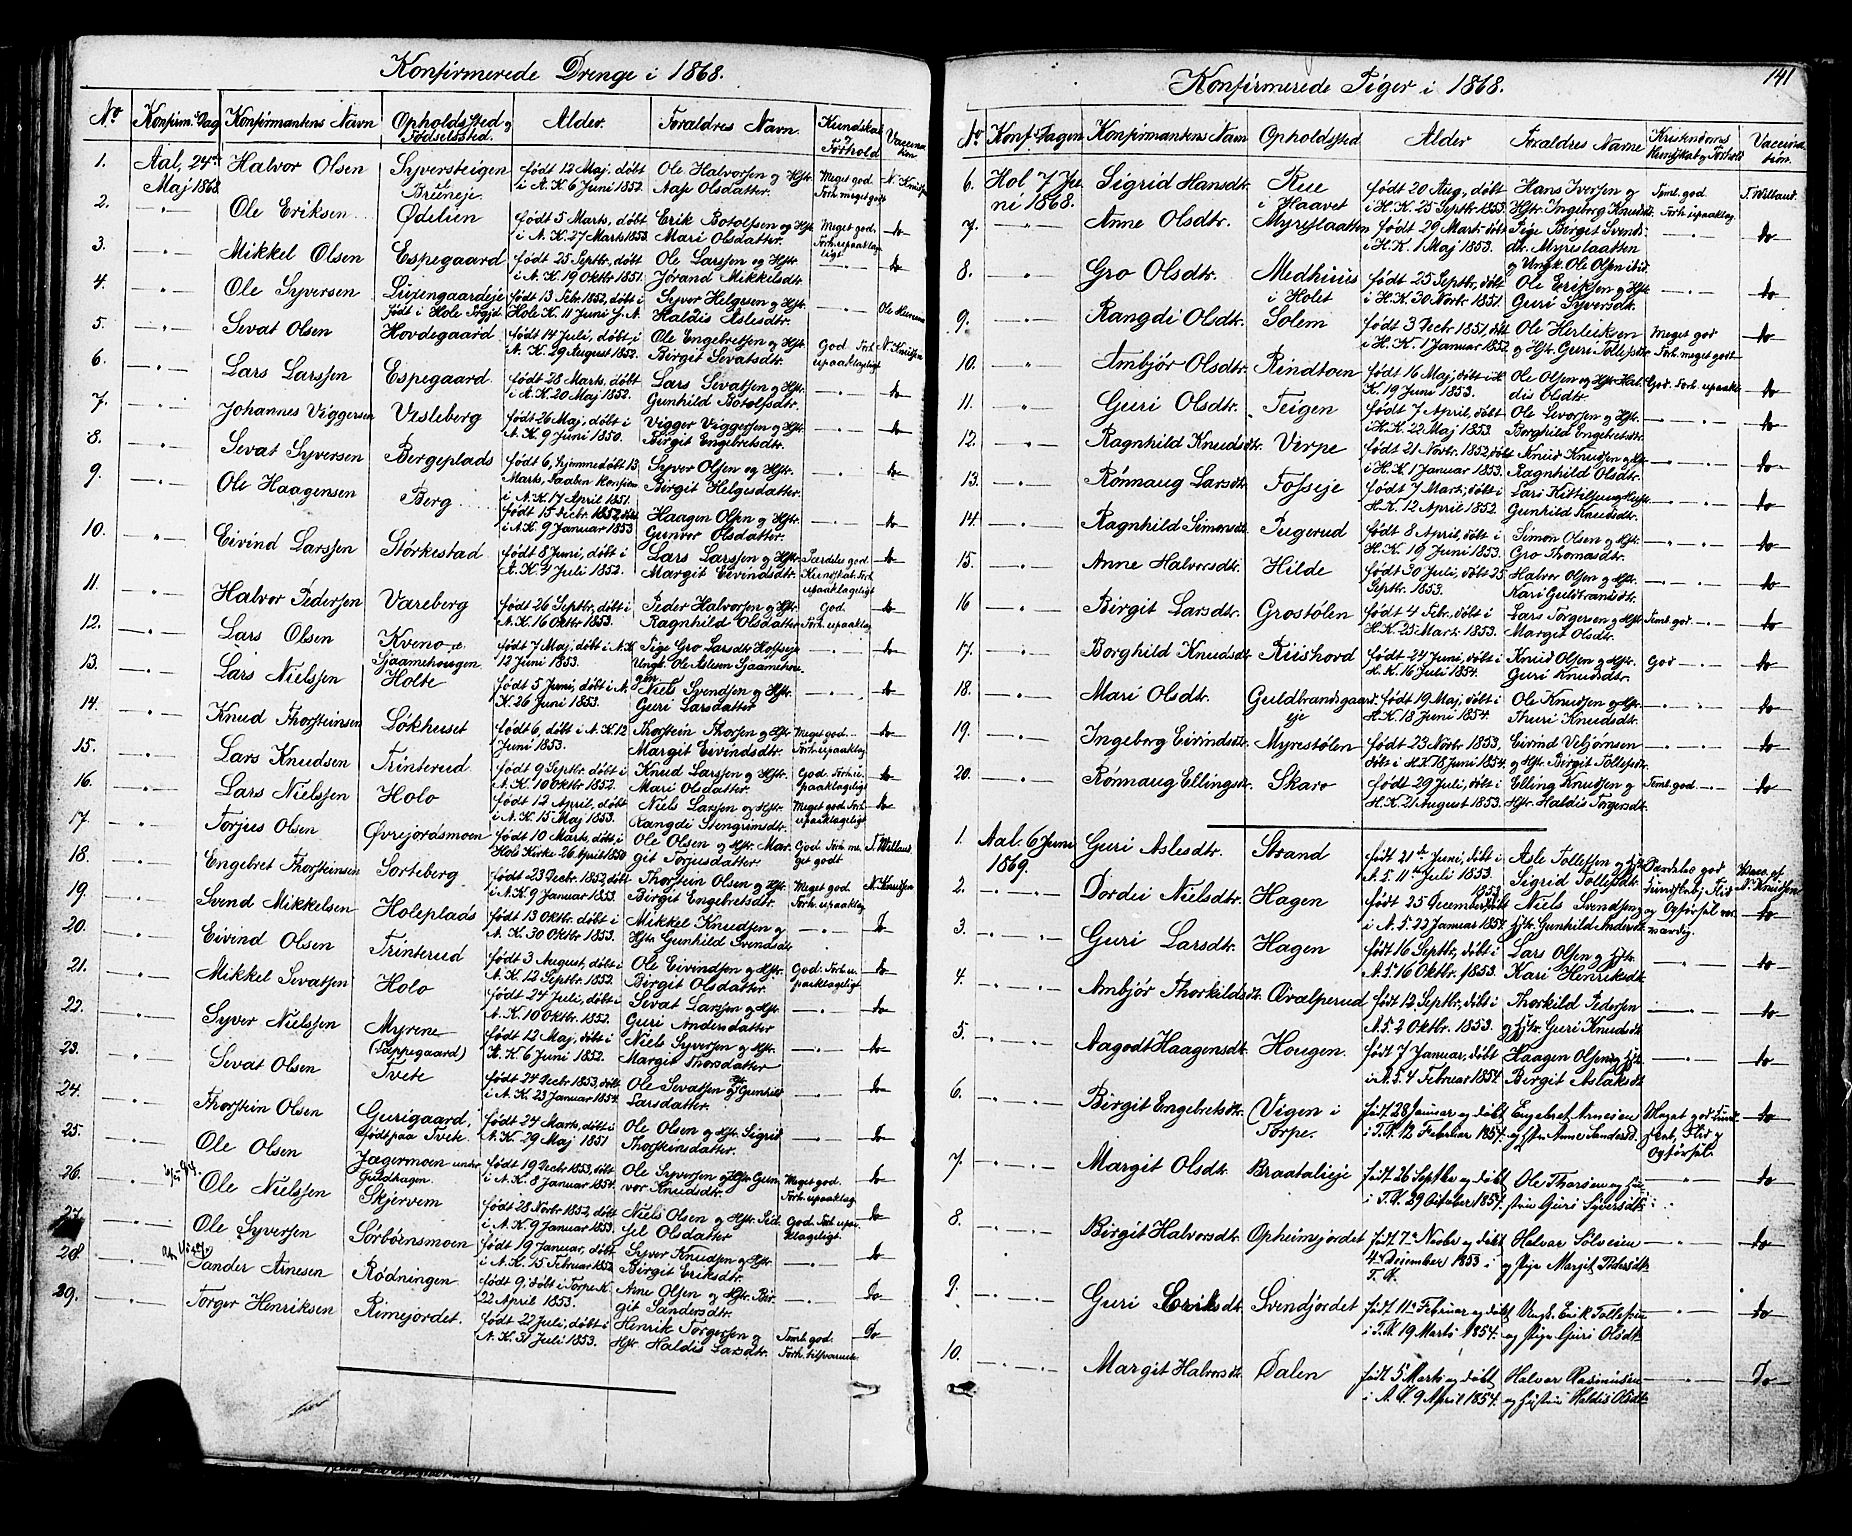 Konfirmerede Drenge i 1868.
No Konfirm. Dag Konfirmantens Navn Opholds Sted og Fødselssted. Alder. Foraldres Navn. Kundskab og Forhold Vaccination
1. Aal, 24de Maj 1868. Halvor Olsen Syversteigen Bruneje. født 12 Maj, døbt i A. K. 6 Juni 1852. Ole Halvorsen og Hstr. Olsdatter. Meget god Forh. meget godt N. Knudsen
2. Ole Eriksen Ødelien født 5 Marts, døbt i A. K. 27 Marts 1853. Erik Botolfsen og Hstr. Mari Olsdatter. Meget god. Forh. upaaklagelige do
3. Mikkel Olsen Espegaard født 25 Septbr., døbt i A. K. 19 Oktbr 1851. Ole Larssen og Hstr. Jørand Mikkelsdtr. do
4. Ole Syversen født i Hole født 13 Febr. 1852, døbt i Hole K. 11 Juni Syver Helgesen og Hstr. Haldis Aslesdtr. Ole
5. Sevat Olsen Hovdegaard født 14 Juli, døbt i A. K. 29 August 1852. Ole Engebretsen og Hstr. Birgit Sevatsdtr. God Forh. upaaklagligt N. Knudsen
6. Lars Larssen Espegaard. født 28 Marts, døbt i A. K. 20 Maj 1852. Lars Sevatsen og Hstr. Gunhild Botolfsdtr. do
7. Johannes Viggersen Visleberg født 26 Maj, døbt i A. K. 9 Juni 1850. Vigger Viggersen og Hstr. Birgit Engebretsdtr. do
8. Sevat Syversen Bergeplads født 6, hjemmedøbt 13 Marts, Daaben Konfirm. i A. K. 17 April 1851. Syver Olsen og Hstr. Birgit Helgesdatter. do
9. Ole Haagensen Berg født 15 Decbr. 1852, døbt i A. K. 9 Januar 1853 Haagen Olsen og Hstr. Gunvor Olsdatter. do
10. Eivind Larssen Størkestad født 8 Juni, døbt i A. K. 4 Juli 1852. Lars Larssen og Hstr. Margit Eivindsdtr. Særdeles god Kundskab. Forh. upaaklageligt do
11. Halvor Pedersen Vareberg født 26 Septbr., døbt i A. K. 16 Oktbr 1853. Peder Halvorsen og Hstr. Ragnhild Olsdatter God. Forh. upaaklag. do
12. Lars Olsen Kveno født 7 Maj, døbt i A. K. 12 Juni 1853. Pige Gro Larsdtr Ungk. Ole do
13. Lars Nielssen Holte født 5 Juni, døbt i A. K. 26 Juni 1853. Niels Svendsen og Hstr. Guri Larsdatter do
14. Knud Thorsteinsen Løkhuset født 6, døbt i A. K. 12 Juni 1853. Thorstein Thorsen og Hstr Margit Eivindsdtr. Meget god. Forh. upaaklag. do
15. Lars Knudsen Trinterud. født 9 Septbr. døbt i A. K. 10 Oktbr 1852. Knud Larssen og Hstr. Mari Olsdatter. God. Forh. upaaklageligt do
16. Lars Nielssen Holo født 12 April, døbt i A. K. 15 Maj 1853. Niels Larssen og Hstr. Rangdi Stengrimsdtr. Meget god Forh. upaaklagligt do
17. Torjus Olsen Øvrejordsmoen født 10 Marts, døbt i Hols Kirke 26 April 1850 Ole Olsen og Hstr. Margit Torjusdatter. God Forh. meget godt T. Willand
18. Engebret Thorsteinsen Sorteberg født 23 Decbr. 1852, døbt i A. K. 9 Januar 1853. Thorstein Olsen og Hstr. Birgit Engebretsdtr. Meget god Forh. upaaklag. N. Knudsen
19. Svend Mikkelsen Holeplads født 13 Oktbr. døbt i A. K. 30 Oktbr. 1853. Mikkel Knudsen og Hstr. Gunhild Svendsdtr do
20. Eivind Olsen Trinterud født 3 August, døbt i A. K. 12 Septbr. 1852. Ole Eivindsen og Hstr. Birgit Olsdatter. God. Forh. upaaklageligt do
21. Mikkel Sevatsen Holo født 24 Juli, døbt i A. K. 10 Oktbr. 1852. Sevat Larssen og Hstr. Guri Andersdatter do
22. Syver Nielssen Myrene (Tappegaard) født 12 Maj, døbt i A. K. 6 Juni 1852. Niels Syversen og Hstr. Margit Thorsdatter do
23. Sevat Olsen Tvete født 24 Decbr 1853, døbt i A. K. 23 Januar 1854. Ole Sevatsen og Hstr Gunhild Larsdatter. do
24. Thorstein Olsen Gurigaard, født paa Tvete. født 24 Marts, døbt i A. K. 29 Maj 1851 Ole Olsen og Hstr. Sigrid Thorsteinsdatter. do
25. Ole Olsen Jægermoen under født 19 Decbr 1853, døbt i A. K. 8 Januar 1854. Ole Syversen og Hstr Gunvor Knudsdtr. do
26. Ole Nielssen Skjervem født 28 Novbr 1852, døbt i A. K. 9 Januar 1853. Niels Olsen og Hstr. Olsdatter Meget god. Forh. upaaklag do
27. Ole Syversen Sørbønsmoen født 19 Januar, døbt i A. K. 15 Februar 1852 Syver Knudsen og Hstr. Birgit Eriksdtr. God. Forh. upaaklageligt. do
28. Sander Arnesen Rødningen født 9, døbt i Torpe K. 22 April 1853. Arne Olsen og Hstr. Birgit Sandersdtr. Do
29. Torger Henriksen Rimejordet. født 22 Juli, døbt i A. K. 31 Juli 1853. Henrik Torgersen og Hstr. Haldis Larsdtr. Temt. god. Forh. tilfvarende Do
141
Konfirmerede Piger i 1868.
No Konf. Dagen Konfirmantens Navn Opholdssted Alder Foraldres Navne Kristendoms Kundskab og Forhold Vaccination.
6. Hol 7 Juni 1868. Sigrid Hansdtr. Rue i Haavet født 20 Aug., døbt i H. K. 25 Septbr 1853 Hans Iversen og Hstr. Ingeborg Knudsdtr Temt. god Forh. upaaklag T. Willand
7. Anne Olsdtr. Myreslaatten født 29 Mart. døbt i H. K. 1 Maj 1853. Pige Birgit Svendsdtr. Myreslaatten og Ungk. Ole Olsen ibid. do
8. Gro Olsdtr. Medhuus i Holet født 25 Septbr., døbt i H. K. 30 Novbr. 1851. Ole Eriksen og Hstr Guri Syversdtr. do
9. Rangdi Olsdtr. Solem født 3 Decbr 1851, døbt i H. K. 1 Januar 1852. Ole Herleiksen og Hstr. Guri Tollefsdtr Meget god Forh. meget godt do
10. Ambjør Olsdtr. Rindtoen født 16 Maj, døbt i H. K. 19 Juni 1853. Ole Olsen og Hstr. Haldis Olsdtr. God. Forh. upaaklag. do
11. Guri Olsdtr. Teigen født 7 April, døbt i H. K. 22 Maj 1853. Ole Levorsen og Hstr. Borghild Engebretsdtr. do
12. Ragnhild Knudsdtr. Virpe født 21 Novbr. 1852, døbt i H. K. 1 Januar 1853. Knud Knudsen og Hstr Ragnhild Olsdtr. do
13. Rønnaug Larsdtr. Fosseje født 7 Mart., døbt i H. K. 12 April 1852. Lars Kittilsen og Hustr. Gunhild Knudsdtr. do
14. Ragnhild Simonsdtr. Pugerud født 8 April, døbt i H. K. 19 Juni 1853. Simon Olsen og Hstr. Gro Thomasdtr. do
15. Anne Halvorsdtr. Hilde født 30 Juli, døbt 25 Septbr. 1853. Halvor Olsen og Hstr. Kari Guldbrandsdtr. do
16 Birgit Larsdtr. Grostølen født 4 Febr., døbt i H. K. 25 Mart. 1853. Lars Torgersen og Hstr Margit Olsdtr. Temt. god. do
17. Borghild Knudsdtr. Riishovd født 24 Juni, døbt i H. K. 16 Juli 1854. Knud Olsen og Hstr. Guri Knudsdtr. God do
18. Mari Olsdtr. Guldbrandsgaardeje født 19 Maj, døbt i H. K. 18 Juni 1854. Ole Knudsen og Hstr. Thuri Knudsdtr. do
19. Ingeborg Eivindsdtr. Myrestølen født 23 Novbr 1853, døbt i H. K. 18 Juni 1854. Eivind Vebjørnsen og Hstr. Birgit Tollefsdtr. do
20. Rønnaug Ellingsdtr. Skaro født 29 Juli, døbt i H. K. 21 August 1853. Elling Knudsen og Hstr. Haldis Torgersdtr. Temt. god. do
1. Aal. 6 Juni 1869. Guri Aslesdtr. Strand født 21de Juni, døbt i A. K. 11te Juli 1853. Asle Tollefsen og Hstr Sigrid Tollefsdtr. Særdeles god Kundskab, Flid og Opførsel værdig. N. Knudsen
2. Dordei Nielsdtr. Hagen født 25 December 1853 døbt i A. K. 22 Januar 1854. Niels Svendsen og Hstr. Gunhild Andersdtr. do
3. Guri Larsdtr. Hagen født 16 Septbr., døbt i A. K. 16 Oktbr. 1853. Lars Olsen og Hstr. Kari Henriksdtr. do
4. Ambjør Thorkildsdtr. Qvalperud født 12 Septbr., døbt i A. K. 2 Oktbr. 1853. Thorkild Pedersen og Hstr. Guri Knudsdtr. do
5. Aagodt Haagensdtr. Hougen. født 7 Januar, døbt i A. K. 4 Februar 1854. Haagen Olsen og Hstr. Birgit Aslaksdtr. do
6. Birgit Engebretsdtr. Vigen i Torpe. født 28 Januar og døbt i T. K. 12 Februar 1854. Engebret Arnesen og Hstr Anne Sandersd. Meget god Kundskab, Flid og Opførsel. do
7. Margit Olsdtr. Braatalieje født 26 Septbr og døbt i T. K. 29 October 1854. Ole Thorsen og Hustru Guri Syversdtr. do
8. Birgit Halvorsdtr. Opheimjordet født 7de Novbr og døbt 4 December 1853 i T. K. Halvor og Pige Margit Pedersdtr. do
9. Guri Eriksdtr. Svendjordet født 11te Februar og døbt i T. K. 19 Marts 1854. Ungk. Erik Tollefsen og Pige Guri Olsdtr. do
10. Margit Halvorsdtr. Dalen født 5 Marts og døbt i A. K. 9 April 1854. Halvor Rasmussen og Hustru Haldis Olsdtr. Do